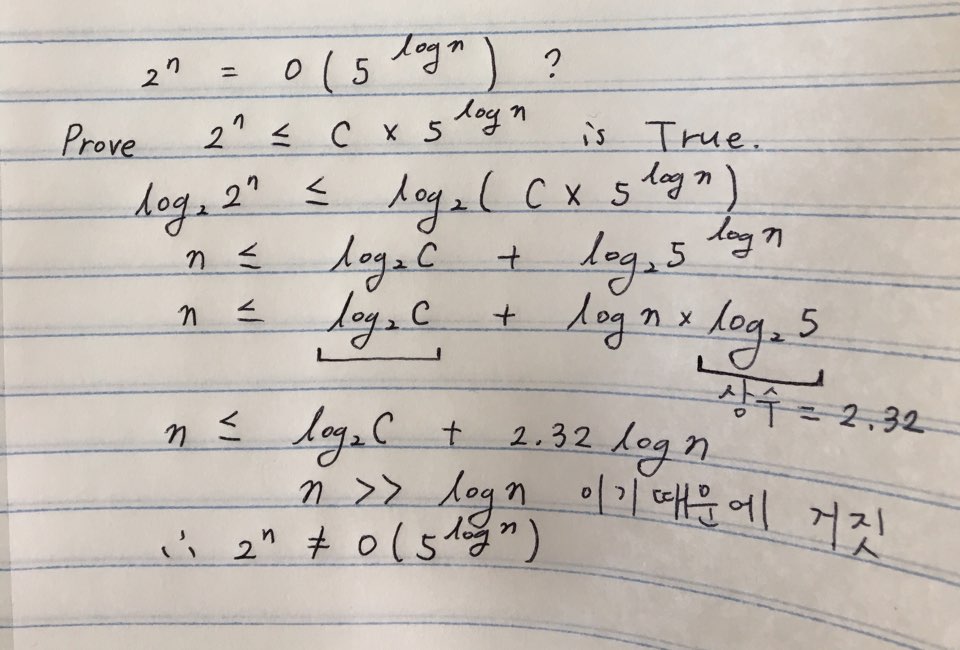 2ⁿ = O ( 5^{log n} ) ?
Prove 2ⁿ ≤ C × 5^{log n} is True.
log₂ 2ⁿ ≤ log₂ ( C × 5^{log n} )
n ≤ log₂ C + log₂ 5^{log n}
n ≤ log₂ C + log n × log₂ 5
상수 = 2.32
n ≤ log₂ C + 2.32 log n
n >> log n 이기 때문에 거짓
∴ 2ⁿ ≠ O ( 5^{log n} )